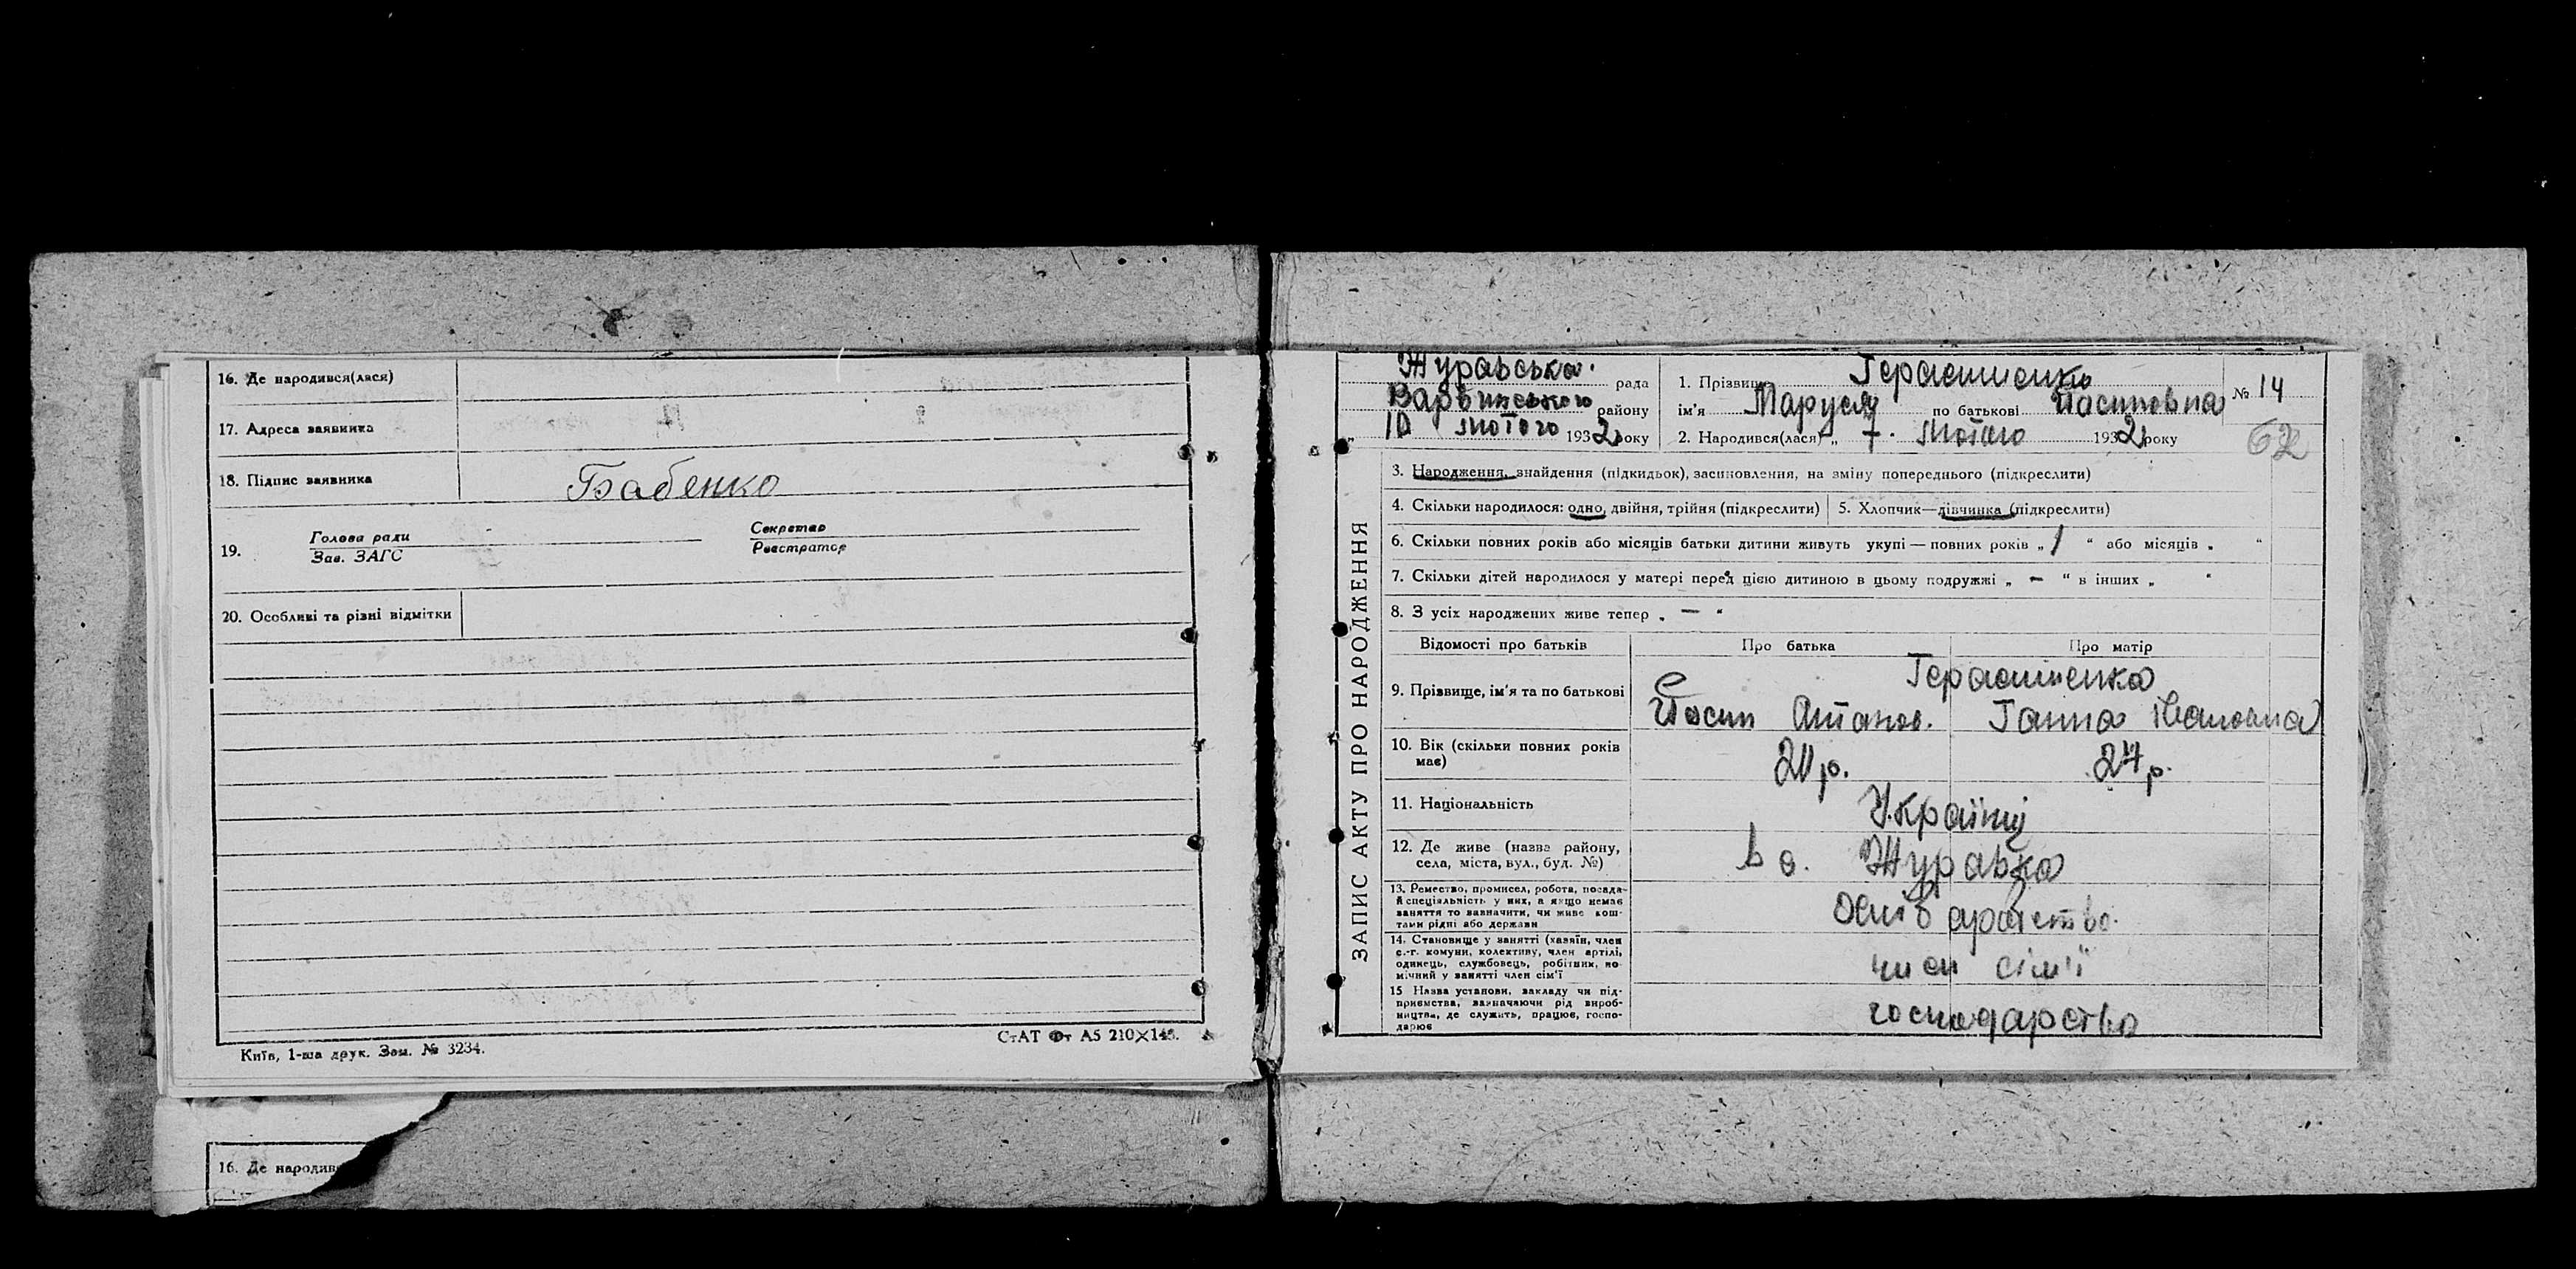 16. Де народився(лася)
17. Адреса заявника
18. Підпис заявника Бабенко
19. Голова ради Секретар
Зав. ЗАГС Реєстратор
20. Особливі та різні відмітки
Київ, 1-ша друк. Зам. № 3234.
СтАТ Фт А5 210×148.
16. Де народив
ЗАПИС АКТУ ПРО НАРОДЖЕННЯ
Журавська рада
Варвинського району
10 лютого 1932 року
1. Прізвище Герасименко
ім'я Маруся по батькові Йосиповна
2. Народився(лася) „ 7. лютого 1932 року
№ 14
62
3. Народження, знайдення (підкидьок), засиновлення, на зміну попереднього (підкреслити)
4. Скільки народилося: одно, двійня, трійня (підкреслити)
5. Хлопчик—дівчинка (підкреслити)
6. Скільки повних років або місяців батьки дитини живуть укупі — повних років „ 1 “ або місяців „ “
7. Скільки дітей народилося у матері перед цією дитиною в цьому подружжі „ — “ в інших „ “
8. З усіх народжених живе тепер „ — “
Відомості про батьків Про батька Про матір
9. Прізвище, ім'я та по батькові Герасименко
Йосип Ганна Івановна
10. Вік (скільки повних років має) 20 р. 24 р.
11. Національність Українці
12. Де живе (назва району, села, міста, вул., буд. №) в с. Журавка
13. Ремество, промисел, робота, посада
й спеціяльність у них, а якщо немає
заняття то зазначити, чи живе кош-
тами рідні або держави
14. Становище у занятті (хазяїн, член
с.-г. комуни, колективу, член артілі,
одинець, службовець, робітник, по-
мічний у занятті член сім'ї член сім'ї
15 Назва установи, закладу чи під-
приємства, зазначаючи рід вироб-
ництва, де служить, працює, госпо-
дарює господарство